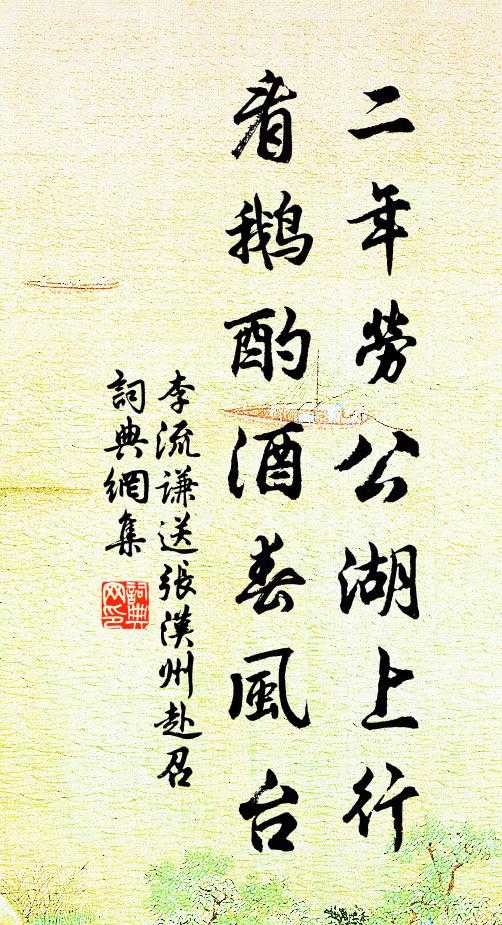 二年劳公湖上行
看鹅酌酒春风台
李流谦送张汉州赴召
词典网集
词典网印